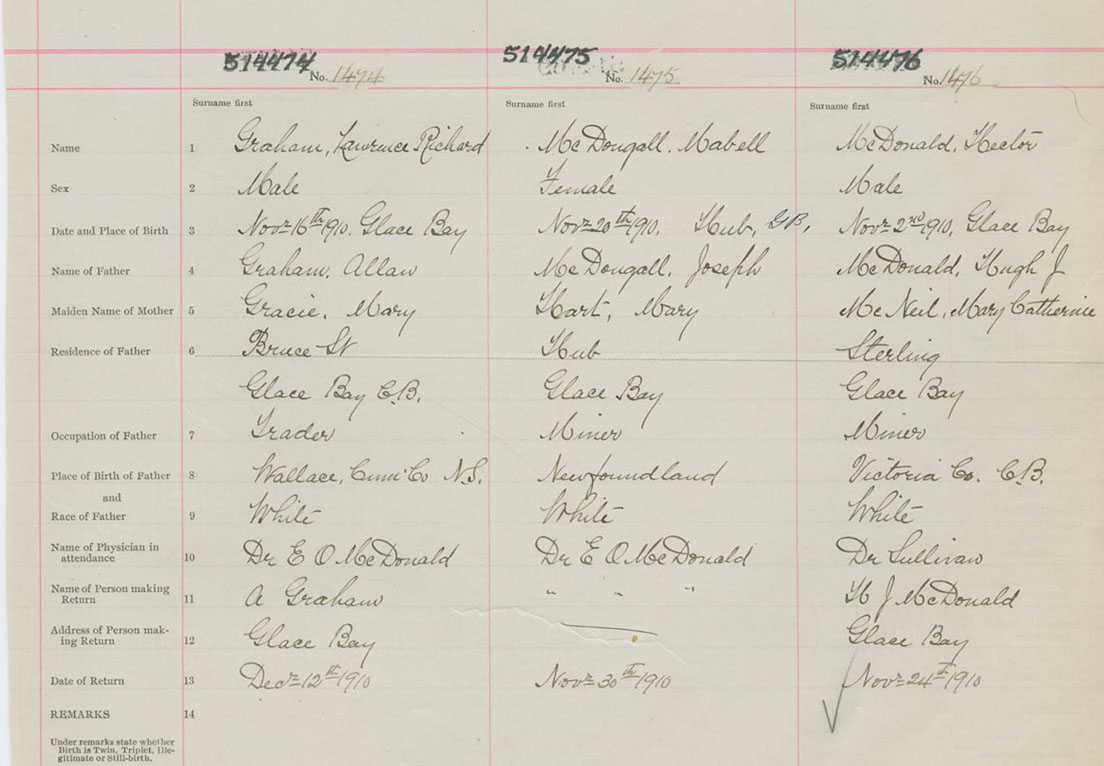 514474 514475 514476
No. 1474 No. 1475 No. 1476
Surname first Surname first Surname first
Name 1 Graham, Lawrence Richard McDougall. Mabell McDonald, Hector
Sex 2 Male Female Male
Date and Place of Birth 3 Novr 16th 1910. Glace Bay Novr 20th 1910. Hub, G.B, Novr 2nd 1910, Glace Bay
Name of Father 4 Graham, Allan McDougall, Joseph McDonald, Hugh J
Maiden Name of Mother 5 Gracie, Mary Hart, Mary McNeil, Mary Catherine
Residence of Father 6 Bruce St Hub Sterling
Glace Bay C.B. Glace Bay Glace Bay
Occupation of Father 7 Trader Miner Miner
Place of Birth of Father 8 Wallace, Cum Co N.S. Newfoundland Victoria Co. C.B.
and
Race of Father 9 White White White
Name of Physician in
attendance 10 Dr E O McDonald Dr E O McDonald Dr Sullivan
Name of Person making
Return 11 A Graham " " " H J McDonald
Address of Person mak-
ing Return 12 Glace Bay Glace Bay
Date of Return 13 Decr 12th 1910 Novr 30th 1910 Novr 24th 1910
REMARKS 14
Under remarks state whether
Birth is Twin, Triplet, Ille-
gitimate or Still-birth.